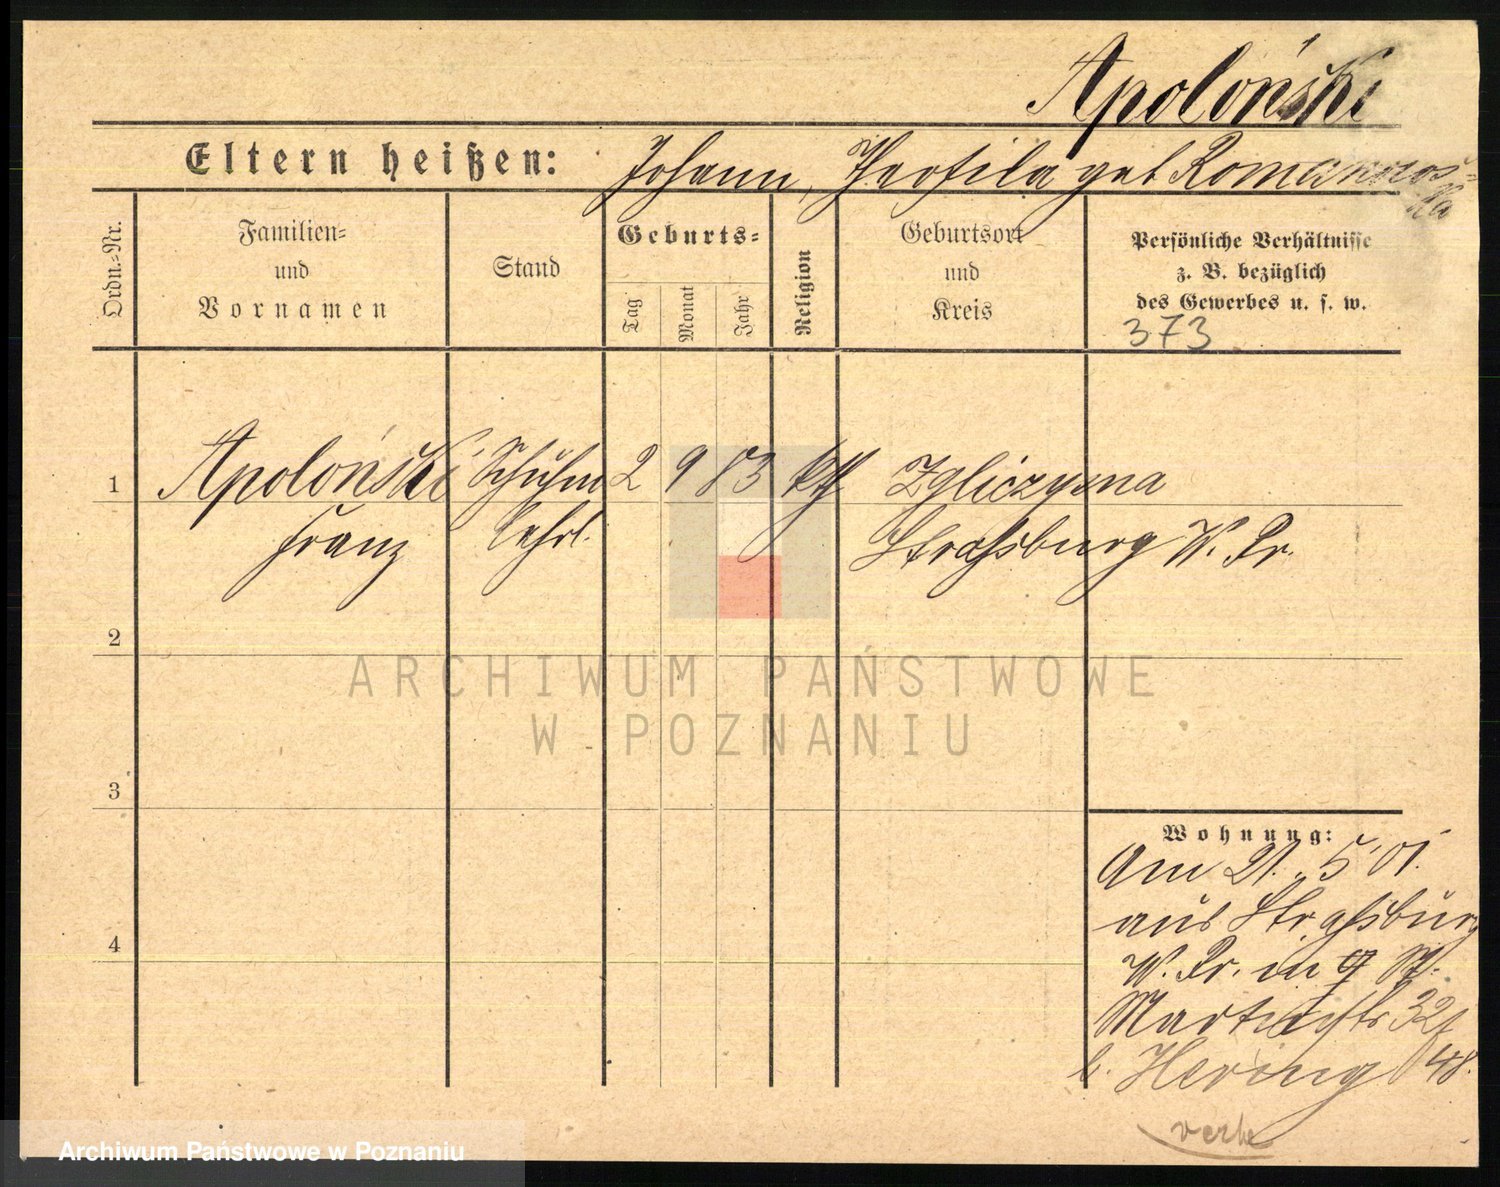 Apoloński
Eltern heißen: Johann, Theofila geb Romannos=
ka
Ordn.-Nr.
Familien=
und
Vornamen
Stand
Geburts=
Tag
Monat
Jahr
Religion
Geburtsort
und
Kreis
Persönliche Verhältnisse
z. B. bezüglich
des Gewerbes u. s. w.
373
1 Apoloński Schuhm 2 9 83 kth Zgliczyma
Franz Lehrl. Strassburg W. Pr.
2
3
4
Wohnung:
Am 21. 5 01.
aus Strassburg
W. Pr. in St.
Martinstr 32
b. Hering 48.
ARCHIWUM PAŃSTWOWE
W POZNANIU
Archiwum Państwowe w Poznaniu